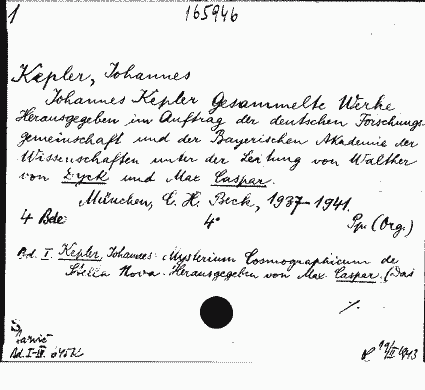 1
165946
Kepler, Johannes
Johannes Kepler Gesammelte Werke
Herausgegeben im Auftrag der deutschen Forschungs-
gemeinschaft und der Bayerischen Akademie der
Wissenschaften unter der Leitung von Walther
von Dyck und Max Caspar.
München, C. H. Beck, 1937–1941.
4 Bde 4° Ppr (Org.)
Bd. I. Kepler, Johannes: Mysterium Cosmographicum de
Stella Nova. Herausgegeben von Max Caspar. (Das
./.
Bd. I-IV.